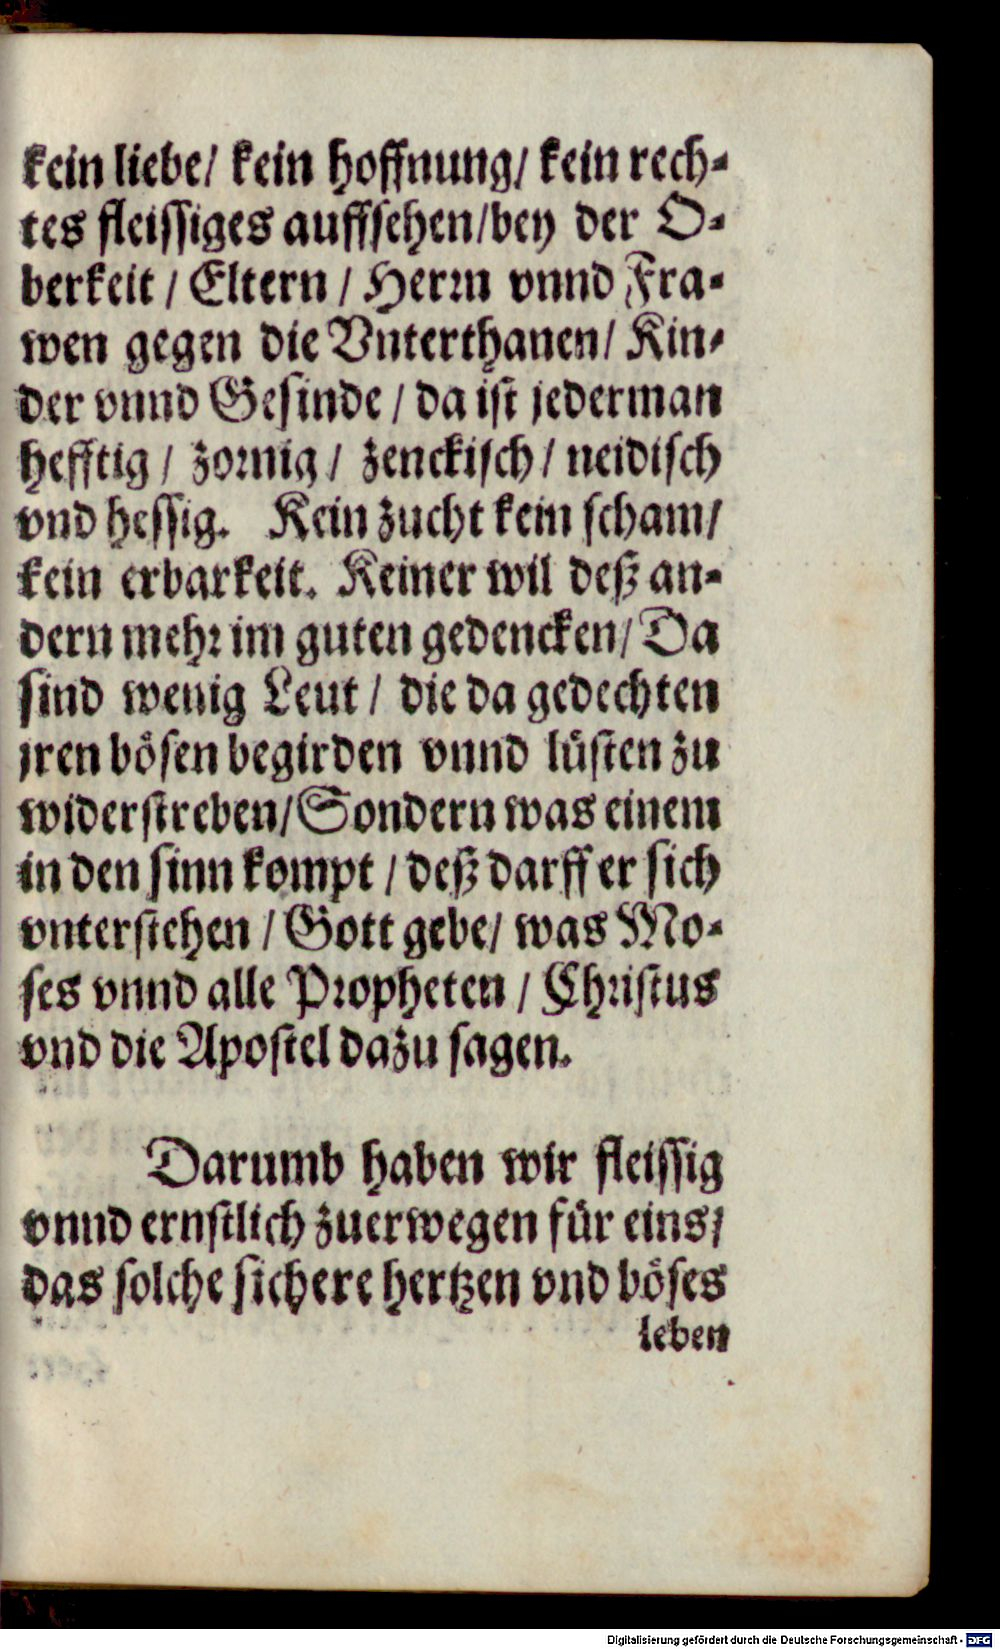 kein liebe/ kein hoffnung/ kein rech-
tes fleissiges auffsehen/bey der O-
berkeit / Eltern / Herrn vnnd Fra-
wen gegen die Vnterthanen/ Kin-
der vnnd Gesinde / da ist jederman
hefftig / zornig / zenckisch / neidisch
vnd hessig. Kein zucht kein scham/
kein erbarkeit. Keiner wil deß an-
dern mehr im guten gedencken/ Da
sind wenig Leut / die da gedechten
jren bösen begirden vnnd lüsten zu
widerstreben/Sondern was einem
in den sinn kompt / deß darff er sich
vnterstehen / Gott gebe/ was Mo-
ses vnnd alle Propheten / Christus
vnd die Apostel dazu sagen.
Darumb haben wir fleissig
vnnd ernstlich zuerwegen für eins/
das solche sichere hertzen vnd böses
leben
Digitalisierung gefördert durch die Deutsche Forschungsgemeinschaft - DFG